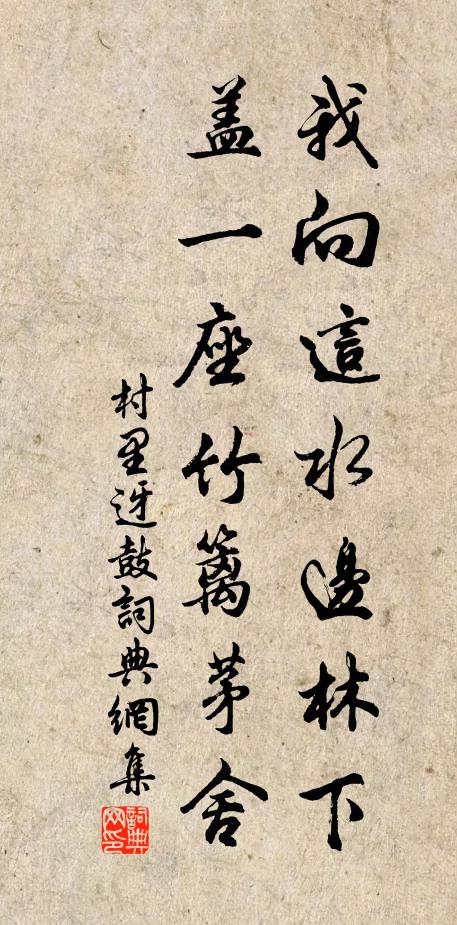 我向這水邊林下
盖一座竹籬茅舍
村里迓鼓詞典網集
詞典
网印